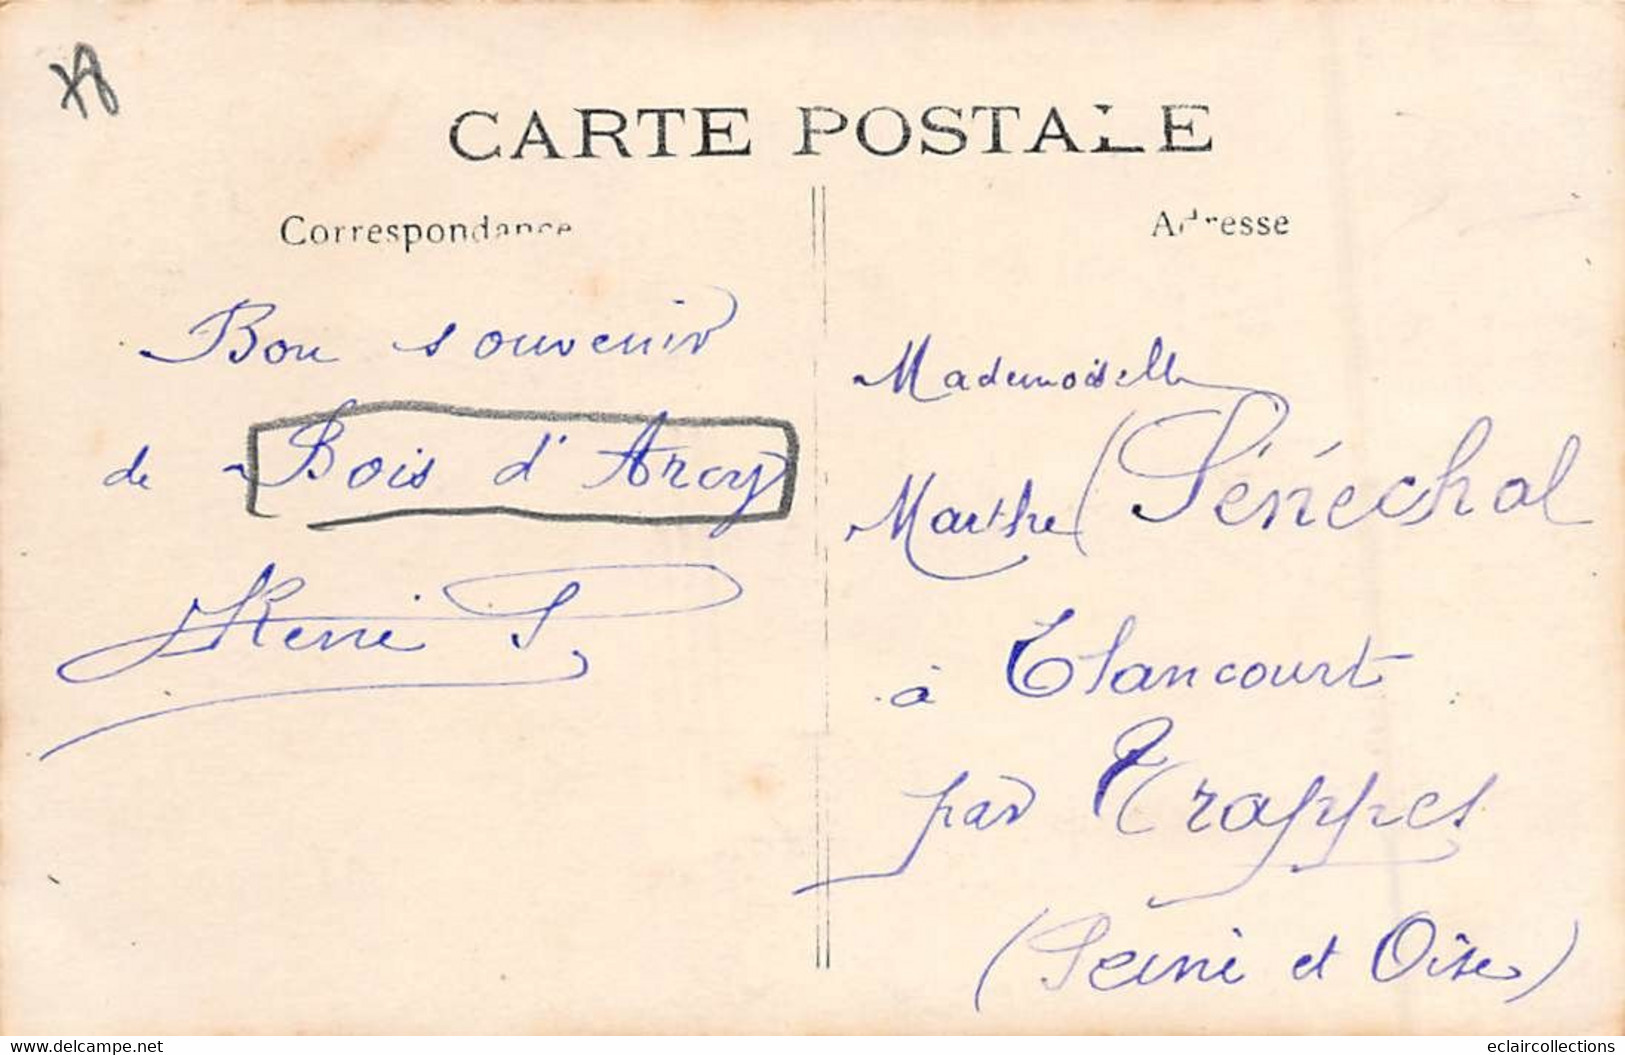 CARTE POSTALE
Correspondance
Adresse
Bon souvenir
de Bois d'Arcy
René S.
Mademoiselle
Marthe Sénéchal
à Elancourt
par Trappes
(Seine et Oise)
www.delcampe.net
eclaircollections